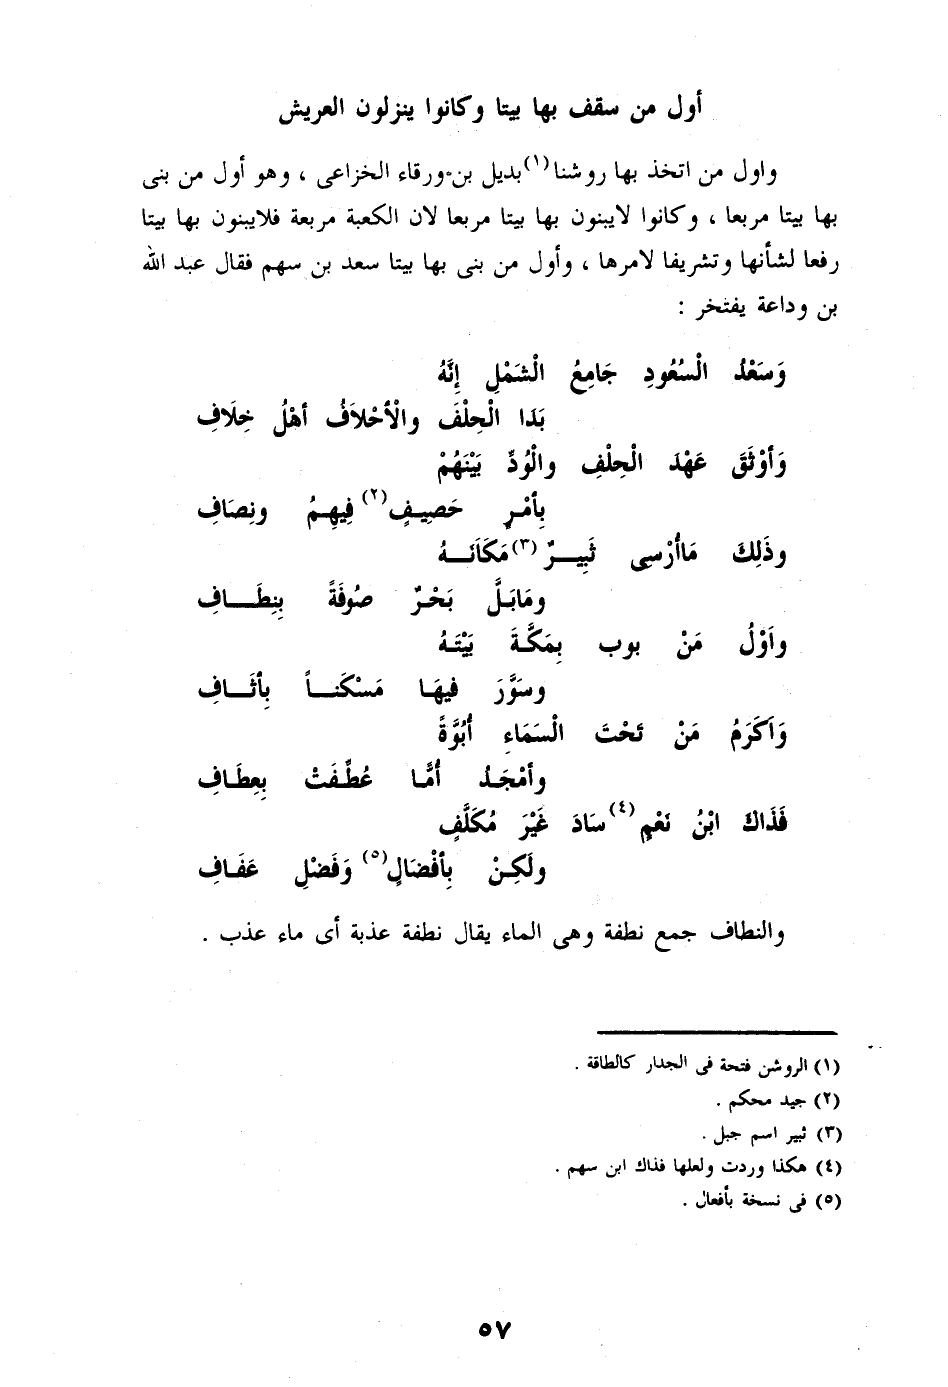 أول من سقف بها بيتا وكانوا ينزلون العريش
واول من اتخذ بها روشنا(١)بديل بن ورقاء الخزاعى ، وهو أول من بنى
بها بيتا مربعا ، وكانوا لايبنون بها بيتا مربعا لان الكعبة مربعة فلايبنون بها بيتا
رفعا لشأنها وتشريفا لامرها ، وأول من بنى بها بيتا سعد بن سهم فقال عبد الله
بن وداعة يفتخر :
وَسَعْدُ الْسُعُودِ جَامِعُ الْشَمْلِ إِنَّهُ
بَدَا الْحِلْفَ والْأحْلَافُ أهْلُ خِلَافِ
وَأوْثَقَ عَهْدَ الْحِلْفِ والْوُدِّ بَيْنَهُمْ
بِأمْرٍ حَصِيفٍ(٢)فِيهِمُ ونِصَافِ
وذَلِكَ مَاأُرْسِى ثَبِيرٌ(٣)مَكَانَهُ
ومَابَلَّ بَحْرٌ صُوفَةً بِنِطَافِ
واَوْلُ مَنْ بوب بِمَكَّةَ بَيْتَهُ
وسَوَّرَ فيهَا مَسْكَناً بِأثَافِ
وَاَكَرَمُ مَنْ تَحْتَ الْسَمَاءِ أُبُوَّةً
وأمْجَدُ أُمَّا عُطِّفَتْ بِعِطَافِ
فَذَاكَ ابْنُ نَعْمٍ(٤)سَادَ غَيْرَ مُكَلَّفٍ
ولَكِنْ بِأفْضَالٍ(٥)وَفَضْلِ عَفَافِ
والنطاف جمع نطفة وهى الماء يقال نطفة عذبة أى ماء عذب .
(١) الروشن فتحة فى الجدار كالطاقة .
(٢) جيد محكم .
(٣) ثبير اسم جبل .
(٤) هكذا وردت ولعلها فذاك ابن سهم .
(٥) فى نسخة بأفعال .
٥٧